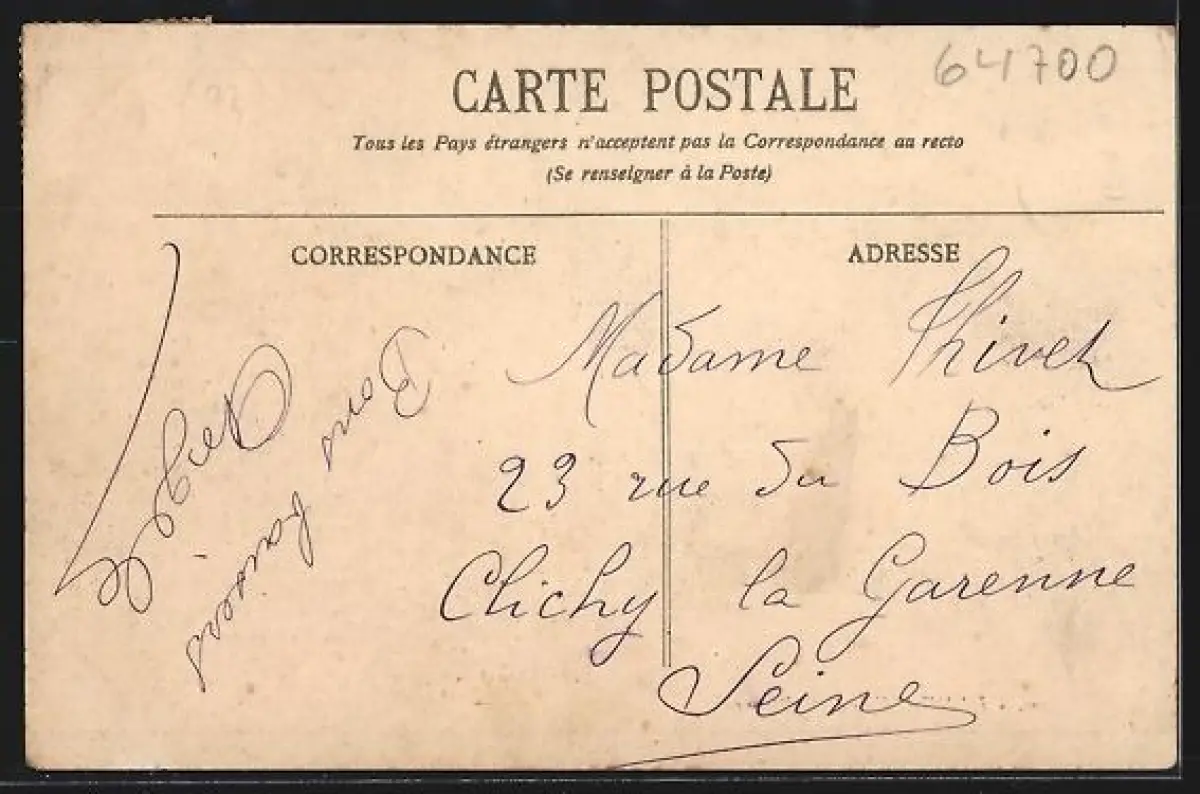 64700
CARTE POSTALE
Tous les Pays étrangers n'acceptent pas la Correspondance au recto
(Se renseigner à la Poste)
CORRESPONDANCE
Bons
baisers
ADRESSE
Madame Thivet
23 rue du Bois
Clichy la Garenne
Seine